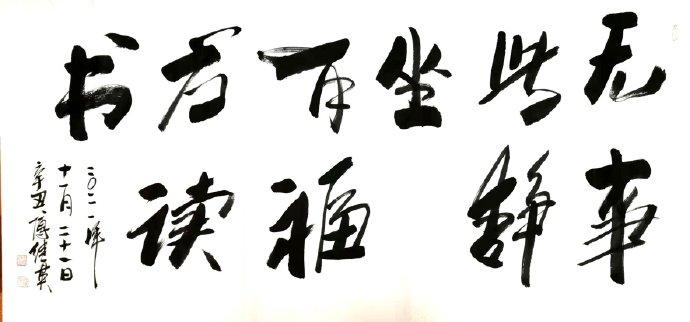 无事
此静
坐
有福
方读
书
二〇二一年
十一月二十一日
辛丑